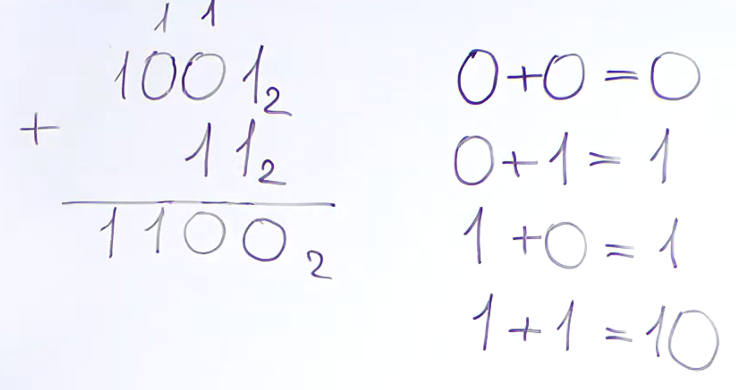 1 1
1001₂
+ 11₂
1100₂
0+0=0
0+1=1
1+0=1
1+1=10